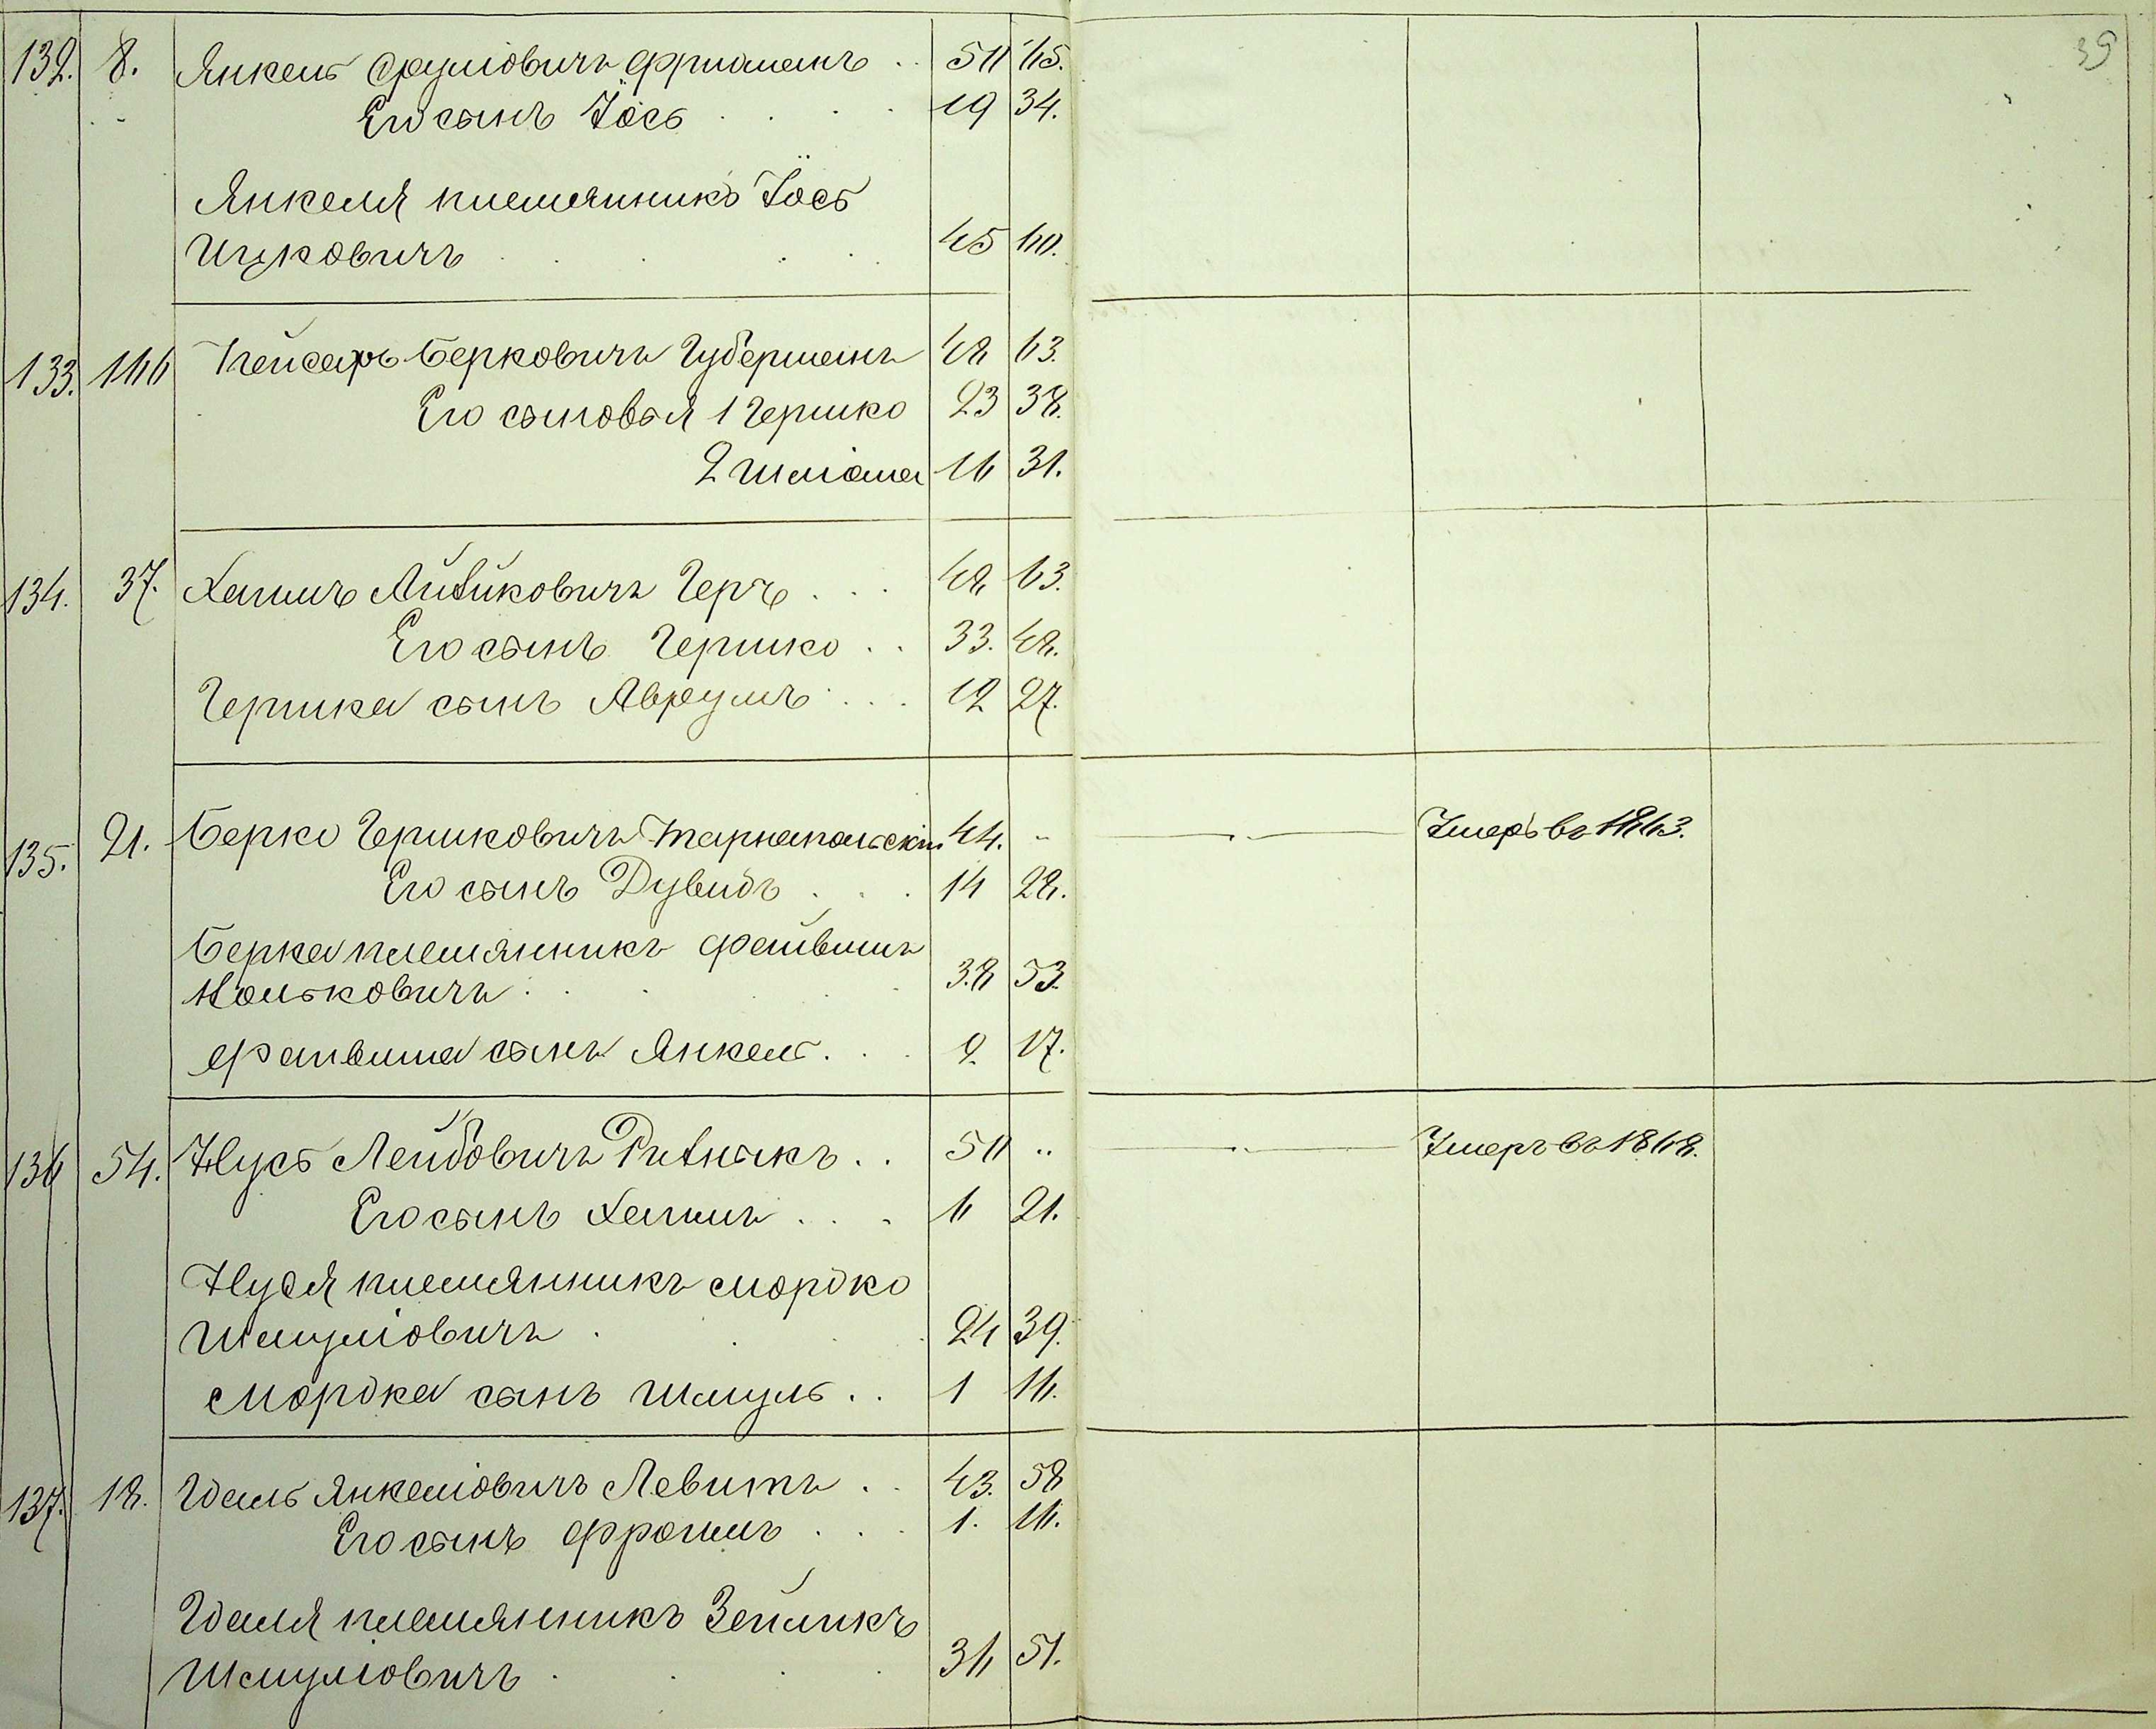 39
132. 8. Янкель Сруліовичъ Фришманъ .. 50 65.
Его сынъ Іось . . . 19 34.
Янкеля племянникъ Іось
Ицковичъ . . . . 45 60.
133. 166 Пейсахъ Берковичъ Губерманъ 48 63.
Его сыновья 1 Гершко 23 38.
2 Шліома 16 31.
134. 37. Хаимъ Айзиковичъ Геръ . . . 48 63.
Его сынъ Гершко . . 33. 48.
Гершка сынъ Аврумъ . . . 12 27.
135. 21. Берко Гершковичъ Тарнапольскій 44. „ Умеръ въ 1863.
Его сынъ Дувидъ . . . 14 28.
Берка племянникъ Файвишъ
Йольковичъ . . . . 38 53.
Файвиша сынъ Янкель . . . 2. 17.
136 54. Нусь Лейбовичъ Ризныкъ . . 50 „ Умеръ въ 1868.
Его сынъ Хаимъ . . . 6 21.
Нуся племянникъ Мордко
Шмуліовичъ . . . . 24 39.
Мордка сынъ Шмуль . . 1 16.
137. 18. Идаль Янкеліовичъ Левитъ . . 43. 58
Его сынъ Фроимъ . . . 1. 16.
Идаля племянникъ Зейликъ
Шмуліовичъ . . . . 36 51.